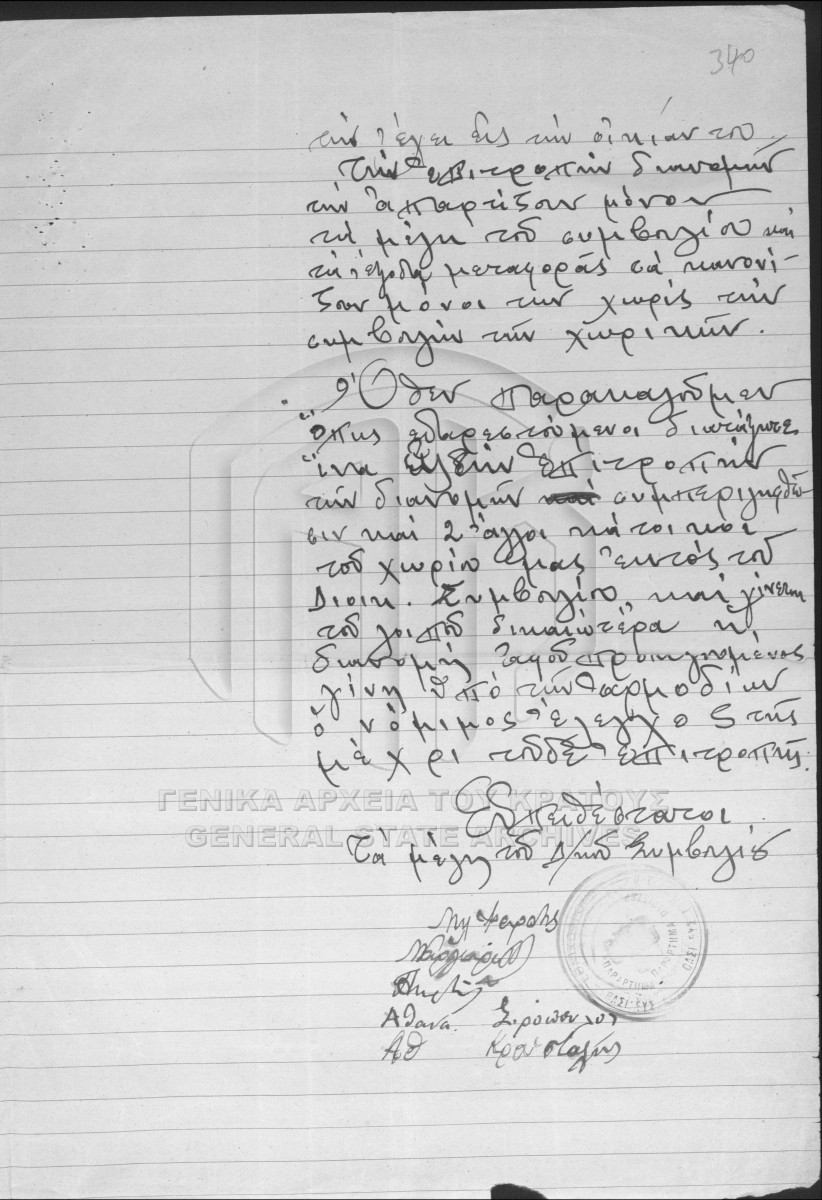 340
τὴν λέγει εἰς τὴν οἰκίαν του.
τὴν ἐπιτροπὴν διανομῆς
τὴν ἀπαρτίζουν μόνον
τὰ μέλη τοῦ συμβουλίου καὶ
τὰ ἔξοδα μεταφορᾶς τὰ κανονί-
ζουν μόνοι των χωρὶς τὴν
συμβολὴν τῶν χωρικῶν.
Ὅθεν παρακαλοῦμεν
ὅπως εὐαρεστούμενοι διατάξητε
ἵνα εἰς τὴν ἐπιτροπὴν
τῶν διανομῶν συμπεριληφθῶ-
σιν καὶ 2 ἄλλοι κάτοικοι
τοῦ χωρίου μας ἐκτὸς τοῦ
Διοικ. Συμβουλίου, καὶ γίνεται
τοῦ λοιποῦ δικαιωτέρα ἡ
διανομὴ ἀφοῦ προηγουμένως
γίνῃ ὑπὸ τῶν ἁρμοδίων
ὁ νόμιμος ἔλεγχος τῆς
μέχρι τοῦδε ἐπιτροπῆς.
Εὐπειθέστατοι
Τὰ μέλη τοῦ Δ/κοῦ Συμβουλίου
ΠΑΡΑΡΤΗΜΑ
Αθανα.
Αθ Κρουσταλης
ΓΕΝΙΚΑ ΑΡΧΕΙΑ ΤΟΥ ΚΡΑΤΟΥΣ
GENERAL STATE ARCHIVES